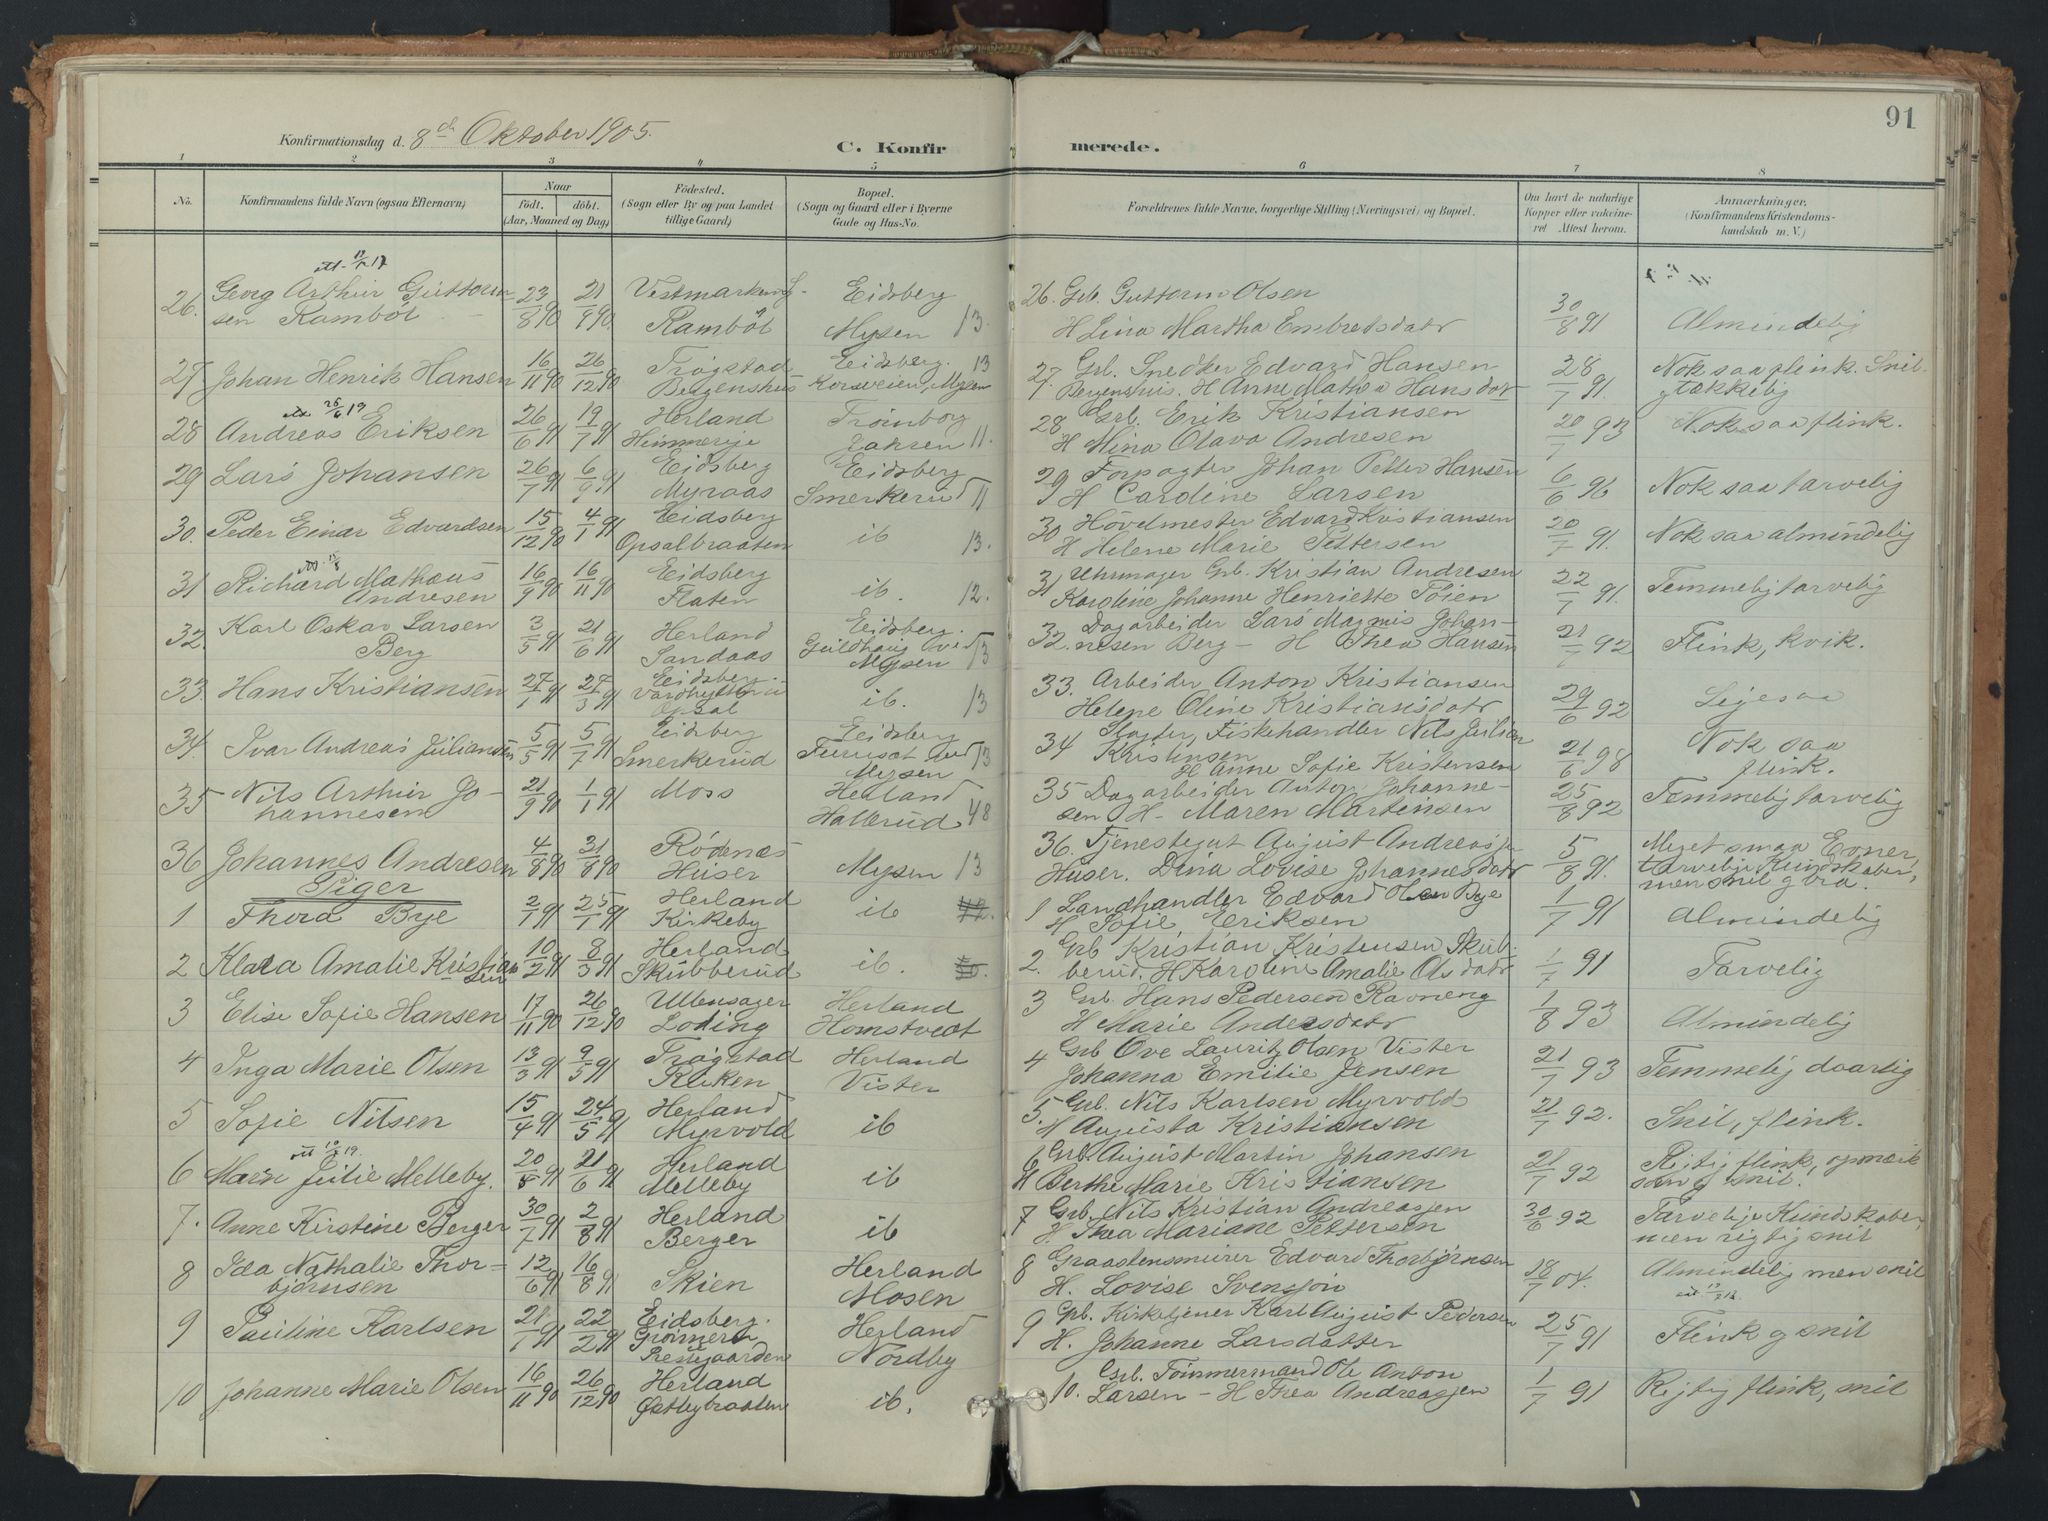 91
Konfirmationsdag d. 8de Oktober 1905.
C. Konfirmerede.
1 2 3 4 5 6 7 8
No.
Konfirmandens fulde Navn (ogsaa Efternavn)
Naar
födt. döbt.
(Aar, Maaned og Dag)
Födested.
(Sogn eller By og paa Landet
tillige Gaard)
Bopæl.
(Sogn og Gaard eller i Byerne
Gade og Hus-No.
Forældrenes fulde Navne, borgerlige Stilling (Næringsvei) og Bopæl.
Om havt de naturlige
Kopper eller vakcine-
ret Attest herom.
Anmærkninger.
(Konfirmandens Kristendoms-
kundskab m. V.)
26. Georg Arthur Guttorm- 23/8 90 21/9 90 Vestmarken Eidsberg 26. Grb. Guttorm Olsen 30/8 91 Almindelig
sen Ramböl Ramböl Mysen 13. H Lina Martha Embretsdatr
27 Johan Henrik Hansen 16/11 90 26/12 90 Trøgstad Eidsberg. 13 27. Grb. Snedker Edvard Hansen 28/7 91. Nok saa flink. Snil
Bergenshus Korsveien, Mysen Bergenshus. H Anne Mathea Hansdatr g tækkelig
28 Andreas Eriksen 26/6 91 19/7 91 Herland Trømborg 28. Grb. Erik Kristiansen 20/7 93 Nok saa flink.
11. H Mina Olava Andresen
29 Lars Johansen 26/7 91 6/9 91 Eidsberg Eidsberg 29 Forpagter Johan Petter Hansen 6/6 96 Nok saa tarvelig
Myraas Smerkerud 11 H Cardine Larsen
30. Peder Einar Edvardsen 15/12 90 4/1 91 Eidsberg ib 13. 30 Hövelmester Edvard Kristiansen 20/7 91. Nok saa almindelig
Opsalbraaten H Helene Marie Pettersen
31 Richard Mathæus 16/9 90 16/11 90 Eidsberg ib. 12. 31 Uhrmager Grb. Kristian Andresen 22/7 91. Temmelig tarvelig
Andresen Flaten Karoline Johanne Henriette Töien
32. Karl Oskar Larsen 3/5 91 21/6 91 Herland Eidsberg. 32. Dagarbeider Lars Magnus Johan- 21/7 92 Flink, kvik.
Berg Sandaas Mysen 13 nesen Berg - H Thea Hansen
33. Hans Kristiansen 27/1 91 27/3 91 Eidsberg ib. 13 33. Arbeider Anton Kristiansen 29/6 92 Ligesaa
Opsal Helene Oline Kristiansdatr
34. Ivar Andreas Juliansen 5/5 91 5/7 91 Eidsberg Eidsberg 34 Slagter, Fiskehandler Nils Julian 21/6 98 Nok saa
Smerkerud Mysen 13 Kristensen flink.
H Anne Sofie Kristensen
35 Nils Arthur Jo- 21/9 91 1/1 91 Moss Herland 35 Dagarbeider Anton Johanne- 25/8 92 Temmelig tarvelig
hannesen Hallerud 48 sen H. Maren Martinsen
36 Johannes Andresen 4/8 90 31/8 90 Rödenes Mysen 13 36. Tjenestegut August Andreasjen 5/8 91. Meget smaa Evner,
Huser Huser. Dina Lovise Johannesdatr tarvelige Kundskaber,
men snil g bra.
Piger
1 Thora Bye 2/1 91 25/1 91 Herland ib 1 Landhandler Edvard Olsen Bye 1/7 91 Almindelig
Kirkeby H Sofie Eriksen
2 Klara Amalie Kristian 10/2 91 8/3 91 Herland ib. 2. Grb Kristian Kristensen Skub- 1/7 91 Tarvelig
sen Skubberud berud. H Karoline Amalie Olsdatr
3 Elise Sofie Hansen 17/11 90 26/12 90 Ullensager Herland 3 Grb. Hans Pedersen Ravneng 1/8 93 Almindelig
Loding Homstvedt H Marie Andersdatr
4 Inga Marie Olsen 13/3 91 9/5 91 Trøgstad Herland 4 Grb Ove Lauritz Olsen Vister 21/7 93 Temmelig daarlig
Vister Johanna Emilie Jensen
5 Sofie Nilsen 15/4 91 24/5 91 Herland ib 5. Grb. Nils Karlsen Myrvold 21/7 92. Snil, flink.
Myrvold H Augusta Kristiansen
6 Maren Julie Melleby. 20/5 91 21/6 91 Herland ib 6 Grb. August Martin Johansen 21/7 92 Rigtig flink, opmærk
Melleby H Berthe Marie Kristiansen som g snil.
7. Anne Kirstine Berger 30/7 91 2/8 91 Herland ib 7 Grb. Nils Kristian Andreasjen 30/6 92 Tarvelige Kundskaber,
Berger H. Thea Mariane Pettersen men rigtig snil
8 Ida Nathalie Thor- 12/6 91 16/8 91 Skien Herland 8 Graastensmurer Edvard Thorbjørnsen 28/7 04. Almindelig men snil
bjørnsen Mosen H. Lovise Svensjon
9 Pauline Karlsen 21/1 91 22/2 91 Eidsberg. Herland 9 Grb. Kirketjener Karl August Pedersen 25/7 91 Flink g snil
Prestegaarden Nordby H. Johanne Larsdatter
10 Johanne Marie Olsen 16/11 90 26/12 90 Herland ib. 10. Grb. Tömmermand Ole Anton 1/7 91 Rigtig flink, snil
Østbybraaten Larsen - H Thea Andreasjen